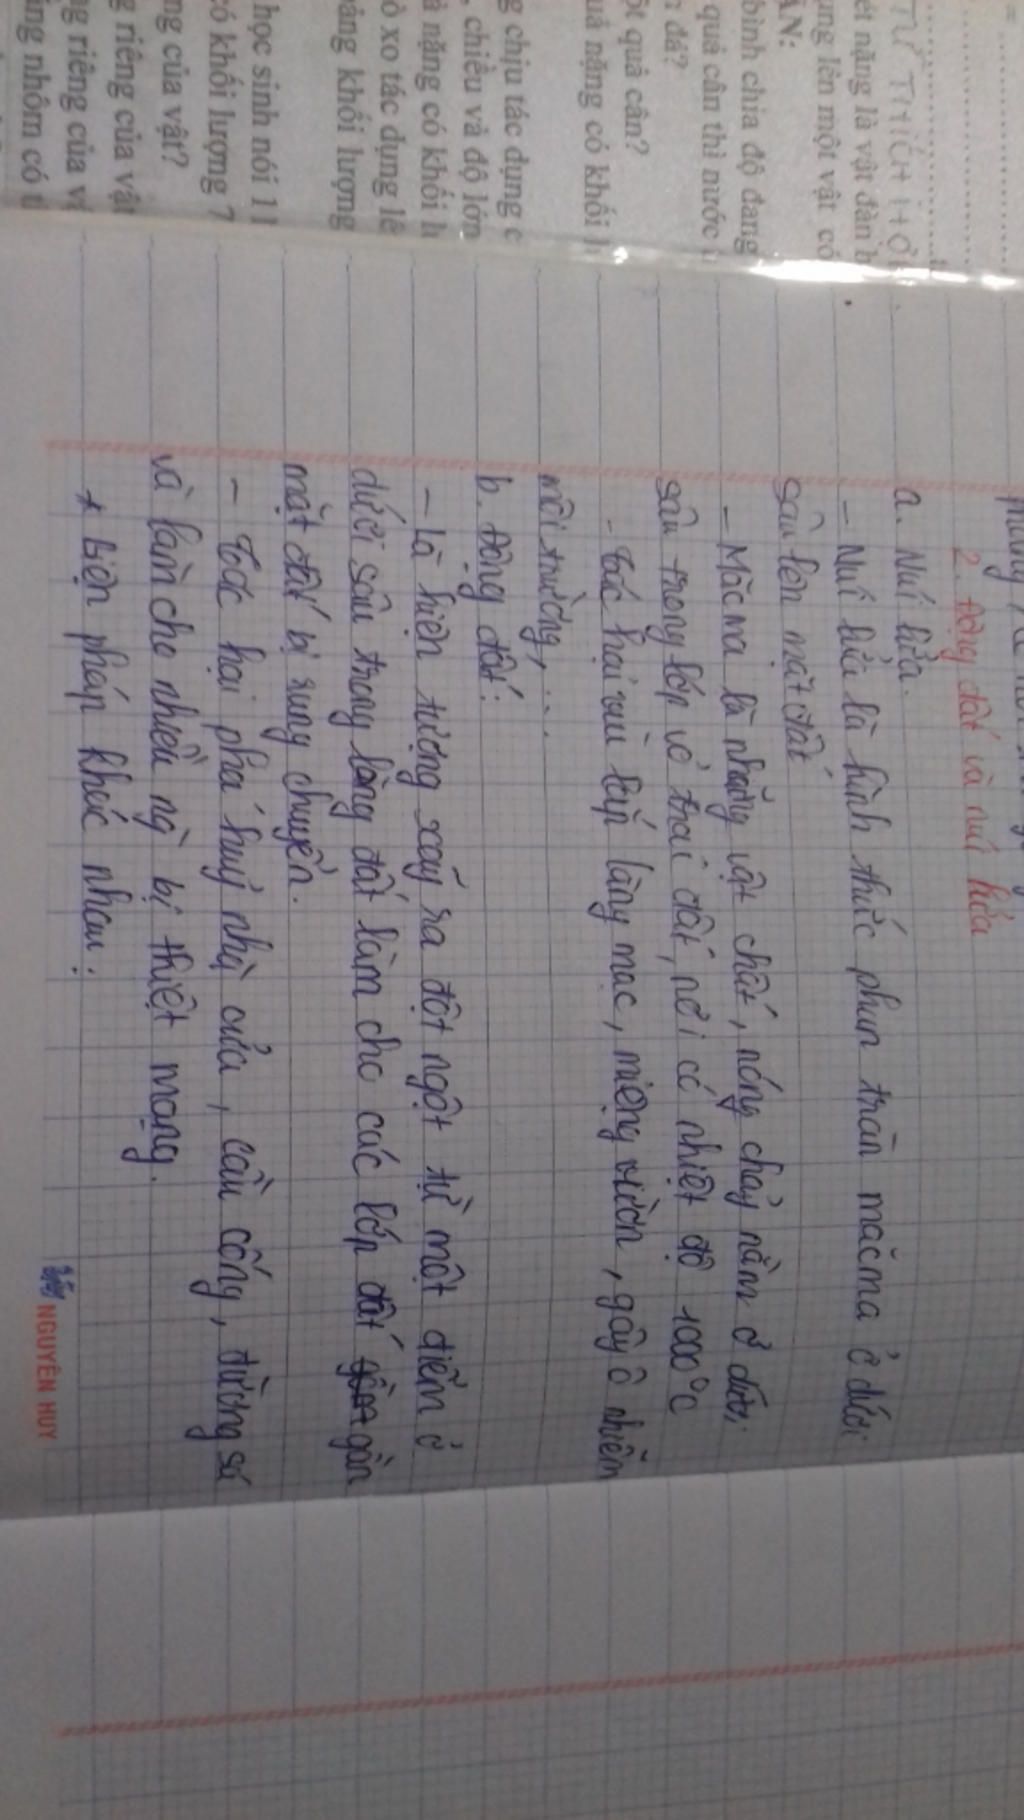 2. Động đất và núi lửa
a. Núi lửa.
– Núi lửa là hình thức phun trào măcma ở dưới
sâu lên mặt đất
– Măcma là những vật chất, nóng chảy nằm ở dưới
sâu trong lớp vỏ trái đất, nơi có nhiệt độ 1000°C
- Tác hại vùi lấp làng mạc, miệng vườn, gây ô nhiễm
môi trường, ...
b. Động đất:
– Là hiện tượng xảy ra đột ngột từ một điểm ở
dưới sâu trong lòng đất làm cho các lớp đất gần
mặt đất bị rung chuyển.
– Tác hại phá huỷ nhà cửa, cầu cống, đường sá
và làm cho nhiều ng bị thiệt mạng.
* Biện pháp khác nhau:
NGUYÊN HUY
TỪ THÍCH HỢ
ét nặng là vật đàn
ụng lên một vật có
ẦN:
bình chia độ đang
quả cân thì nước
đá?
ột quả cân?
uả nặng có khối
g chịu tác dụng c
, chiều và độ lớn
à nặng có khối
ò xo tác dụng lê
bảng khối lượng
học sinh nói 1
có khối lượng 7
ng của vật?
g riêng của vật
ng riêng của v
ằng nhôm có